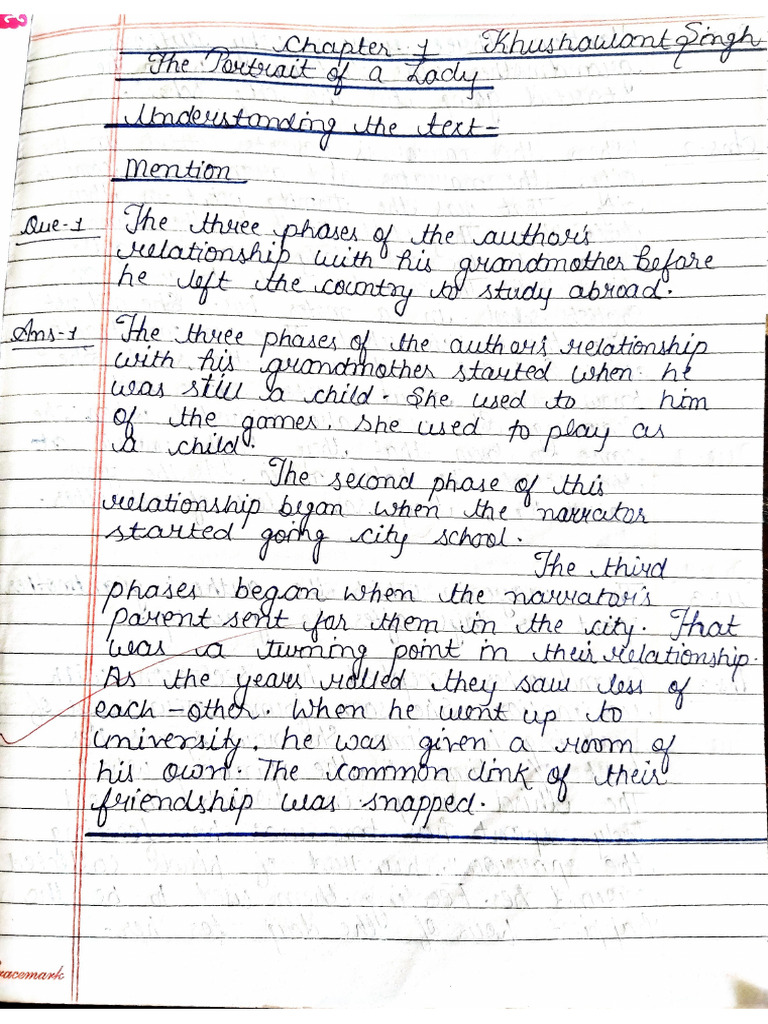 Chapter 1 Khushawant Singh
The Portrait of a Lady
Understanding the text-
Mention
Que-1 The three phases of the author's
relationship with his grandmother before
he left the country to study abroad.
Ans-1 The three phases of the author's relationship
with his grandmother started when he
was still a child. She used to him
of the games. She used to play as
a child.
The second phase of this
relationship began when the narrator
started going city school.
The third
phases began when the narrator's
parent sent for them in the city. That
was a turning point in their relationship.
As the years rolled they saw less of
each-other. When he went up to
university. he was given a room of
his own. The common link of their
friendship was snapped.
racemark